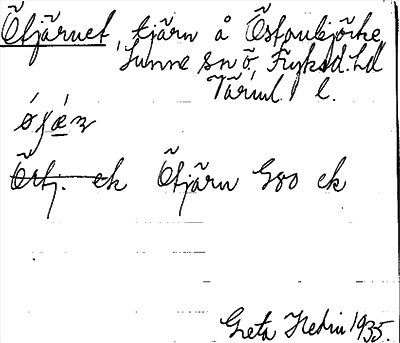 Õtjärnet, tjärn å Östanbjörke,
Sunne sn ö. Fryksd. hd
Värml. l.
Õrtj. ek Õtjärn G80 ek
Greta Hedin 1935.